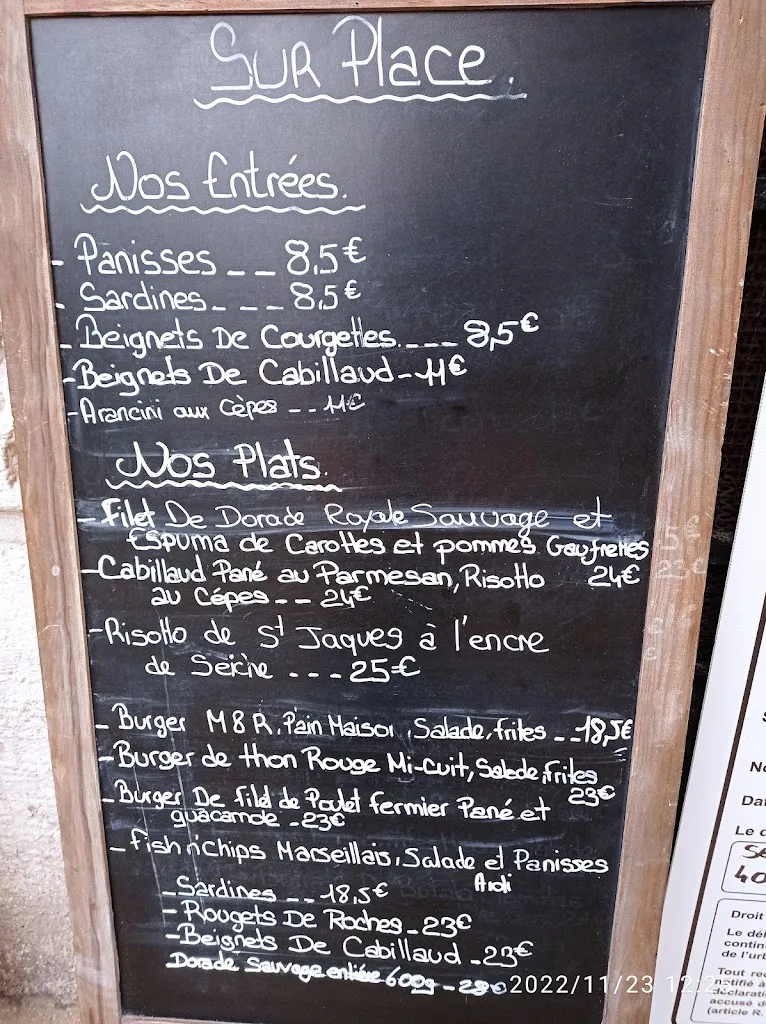 Sur Place.
Nos Entrées.
- Panisses _ _ 8,5€
- Sardines _ _ _ 8,5€
- Beignets De Courgettes _ _ _ _ 8,5€
- Beignets De Cabillaud - 11€
- Arancini aux Cèpes _ _ 11€
Nos Plats.
- Filet De Dorade Royale Sauvage et
Espuma de Carottes et pommes Gaufrettes
24€
- Cabillaud Pané au Parmesan, Risotto
au Cépes - - 24€
- Risotto de St Jaques à l'encre
de Seiche _ _ _ 25€
- Burger M&R, Pain Maison, Salade, frites _ _ 18,5€
- Burger de thon Rouge Mi-Cuit, Salade, frites
23€
- Burger De filet de Poulet fermier Pané et
guacamole - 23€
- Fish n'Chips Marseillais, Salade et Panisses
Aioli
- Sardines _ _ 18,5€
- Rougets De Roches - 23€
- Beignets De Cabillaud - 23€
Dorade Sauvage entière 600g -
2022/11/23 12:2
No
Da
Le d
40
Droit
Le dél
contin
de l'urb
Tout rec
notifié à
déclarati
accusé d
(article R.